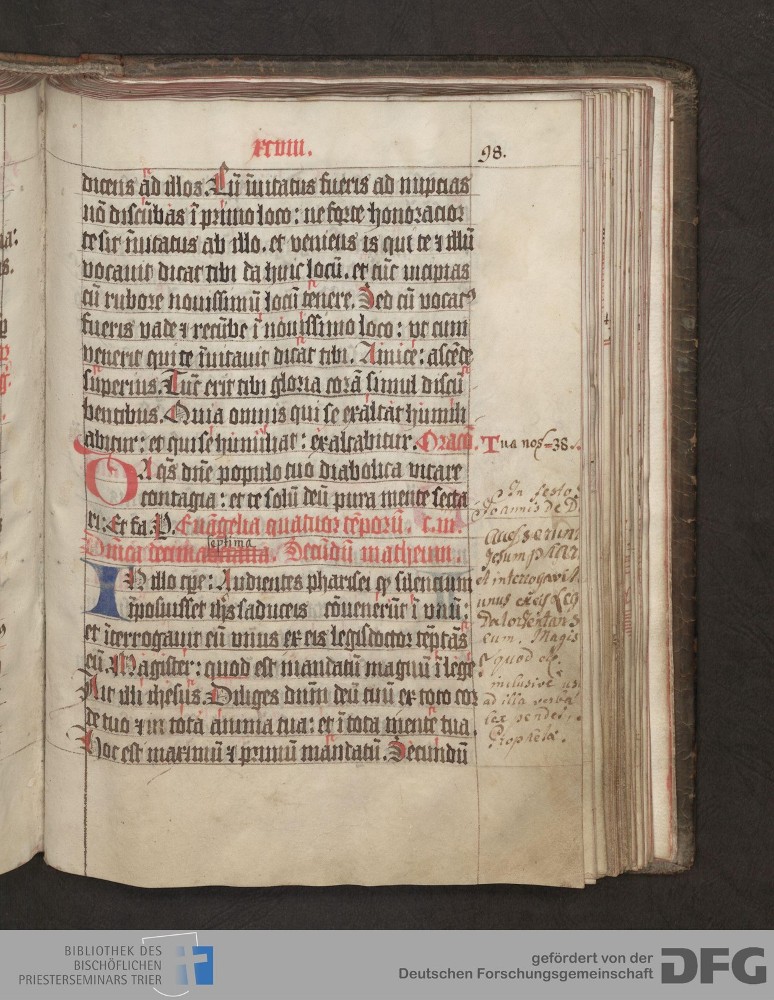 xcviii.
98.
dicens ad illos. Cū īuitatus fueris ad nupcias
nō discūbas ī primo loco: ne forte honoracior
te sit īuitatus ab illo. et veniens is qui te ⁊ illū
vocauit dicat tibi da huic locū. et tūc incipias
cū rubore nouissimū locū tenere. Sed cū vocatꝰ
fueris vade ⁊ recūbe ī nouissimo loco: vt cum
venerit qui te īuitauit dicat tibi. Amice: ascēde
superius. Tūc erit tibi gloria corā simul discū
bentibus. Quia omnis qui se exaltat humili
abitur: et qui se humiliat: exaltabitur. Oracō.
Tua nos 38.
DA qs dn̄e populo tuo diabolica vitare
contagia: et te solū deū pura mente secta
ri: Et fa. P. Euāgelia quatuor tēporū. r. in
Dn̄ica decima septima. Secūdū matheum.
IN illo tp̄e: Audientes pharisei qꝫ silencium
īposuisset ihs saduceis conuenerūt ī vnū:
et īterrogauit eū vnus ex eis legisdoctor tēptās
eū. Magister: quod est mandatū magnū ī lege
Ait illi ihesus. Diliges dn̄m deū tuū ex toto cor
de tuo ⁊ in tota anima tua: et ī tota mente tua
Hoc est maximū ⁊ primū mandatū. Secundū
In festo
Joannis de D.
Accesserunt
Jesum phar.
et interrogavit
unus ex eis leg
Doctor tentans
eum. Magis
quod est
inclusive us
ad illa verba
lex pendet
Prophetae.
BIBLIOTHEK DES
BISCHÖFLICHEN
PRIESTERSEMINARS TRIER
gefördert von der
Deutschen Forschungsgemeinschaft
DFG